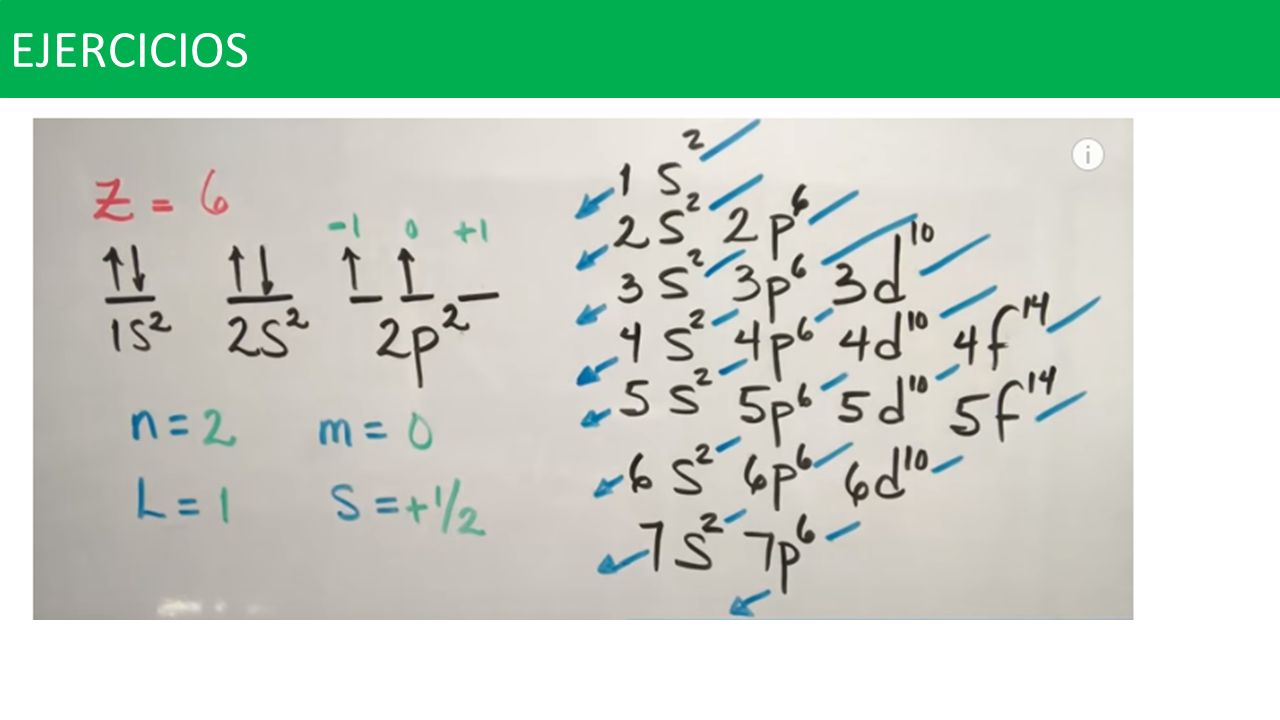 EJERCICIOS
Z = 6
-1 0 +1
↑↓ ↑↓ ↑ ↑
1s² 2s² 2p²
n = 2 m = 0
L = 1 S = +1/2
1s²
2s² 2p⁶
3s² 3p⁶ 3d¹⁰
4s² 4p⁶ 4d¹⁰ 4f¹⁴
5s² 5p⁶ 5d¹⁰ 5f¹⁴
6s² 6p⁶ 6d¹⁰
7s² 7p⁶
i